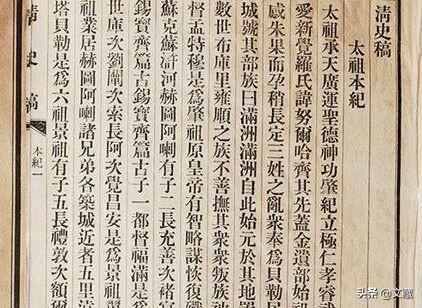 清史稿
太祖本紀
太祖承天廣運聖德神功肇紀立極仁孝睿武
愛新覺羅氏諱努爾哈齊其先蓋金遺部始
感朱果而孕稍長定三姓之亂衆奉為貝勒
城號其部族曰滿洲滿洲自此始元於其地置
數世布庫里雍順之族不善撫其衆衆叛族
督孟特穆是為肇祖原皇帝有智略謀恢復殲
蘇克蘇滸河赫圖阿喇有子二長充善次褚宴
錫寶齊篇古錫寶齊篇古子一都督福滿是
世庫次劉闡次索長阿次覺昌安是為景祖
祖業居赫圖阿喇諸兄弟各築城近者五里
塔貝勒是為六祖景祖有子五長禮敦次額爾
清史稿
本紀一
头条 @文藏